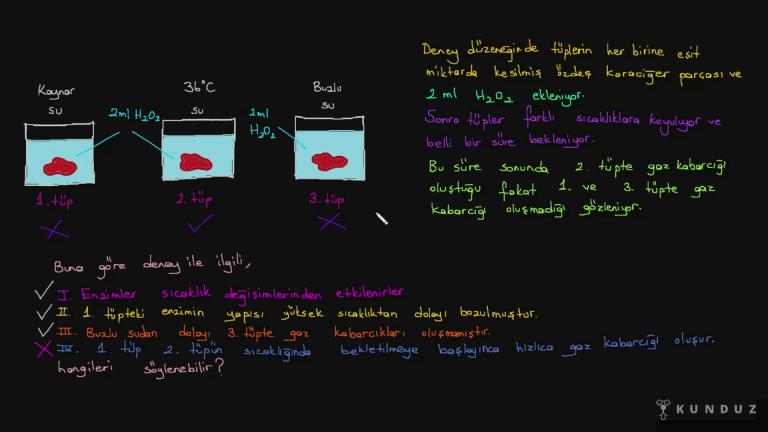 Kaynar
su
36°C
su
Buzlu
su
2ml H₂O₂
2ml
H₂O₂
1. tüp
2. tüp
3. tüp
Deney düzeneğinde tüplerin her birine eşit
miktarda kesilmiş özdeş karaciğer parçası ve
2 ml H₂O₂ ekleniyor.
Sonra tüpler farklı sıcaklıklara koyuluyor ve
belli bir süre bekleniyor.
Bu süre sonunda 2. tüpte gaz kabarcığı
oluştuğu fakat 1. ve 3. tüpte gaz
kabarcığı oluşmadığı gözleniyor.
Buna göre deney ile ilgili,
I. Enzimler sıcaklık değişimlerinden etkilenirler.
II. 1. tüpteki enzimin yapısı yüksek sıcaklıktan dolayı bozulmuştur.
III. Buzlu sudan dolayı 3. tüpte gaz kabarcıkları oluşmamıştır.
IV. 1. tüp 2. tüpün sıcaklığında bekletilmeye başlayınca hızlıca gaz kabarcığı oluşur.
hangileri söylenebilir?
KUNDUZ